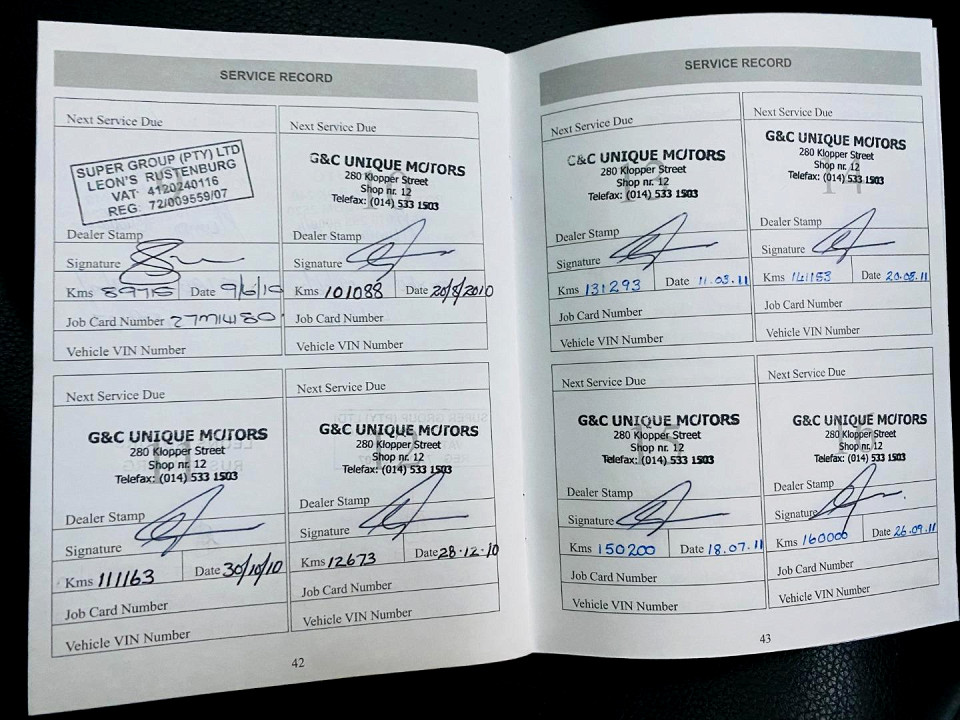 SERVICE RECORD
Next Service Due
SUPER GROUP (PTY) LTD
LEON'S RUSTENBURG
VAT 4120240116
REG. 72/009559/07
Dealer Stamp
Signature
Kms Date 9/6/10
Job Card Number
Vehicle VIN Number
Next Service Due
G&C UNIQUE MOTORS
280 Klopper Street
Shop nr. 12
Telefax: (014) 533 1503
Dealer Stamp
Signature
Kms 101088 Date 20/8/2010
Job Card Number
Vehicle VIN Number
Next Service Due
G&C UNIQUE MOTORS
280 Klopper Street
Shop nr. 12
Telefax: (014) 533 1503
Dealer Stamp
Signature
Kms 111163 Date 30/10/10
Job Card Number
Vehicle VIN Number
Next Service Due
G&C UNIQUE MOTORS
280 Klopper Street
Shop nr. 12
Telefax: (014) 533 1503
Dealer Stamp
Signature
Kms 12673 Date 28.12.10
Job Card Number
Vehicle VIN Number
42
SERVICE RECORD
Next Service Due
G&C UNIQUE MOTORS
280 Klopper Street
Shop nr. 12
Telefax: (014) 533 1503
Dealer Stamp
Signature
Kms 131293 Date 11.03.11
Job Card Number
Vehicle VIN Number
Next Service Due
G&C UNIQUE MOTORS
280 Klopper Street
Shop nr. 12
Telefax: (014) 533 1503
14
Dealer Stamp
Signature
Kms 141153 Date 20.05.11
Job Card Number
Vehicle VIN Number
Next Service Due
G&C UNIQUE MOTORS
280 Klopper Street
Shop nr. 12
Telefax: (014) 533 1503
Dealer Stamp
Signature
Kms 150200 Date 18.07.11
Job Card Number
Vehicle VIN Number
Next Service Due
G&C UNIQUE MOTORS
280 Klopper Street
Shop nr. 12
Telefax: (014) 533 1503
Dealer Stamp
Signature
Kms 160000 Date 26.09.11
Job Card Number
Vehicle VIN Number
43